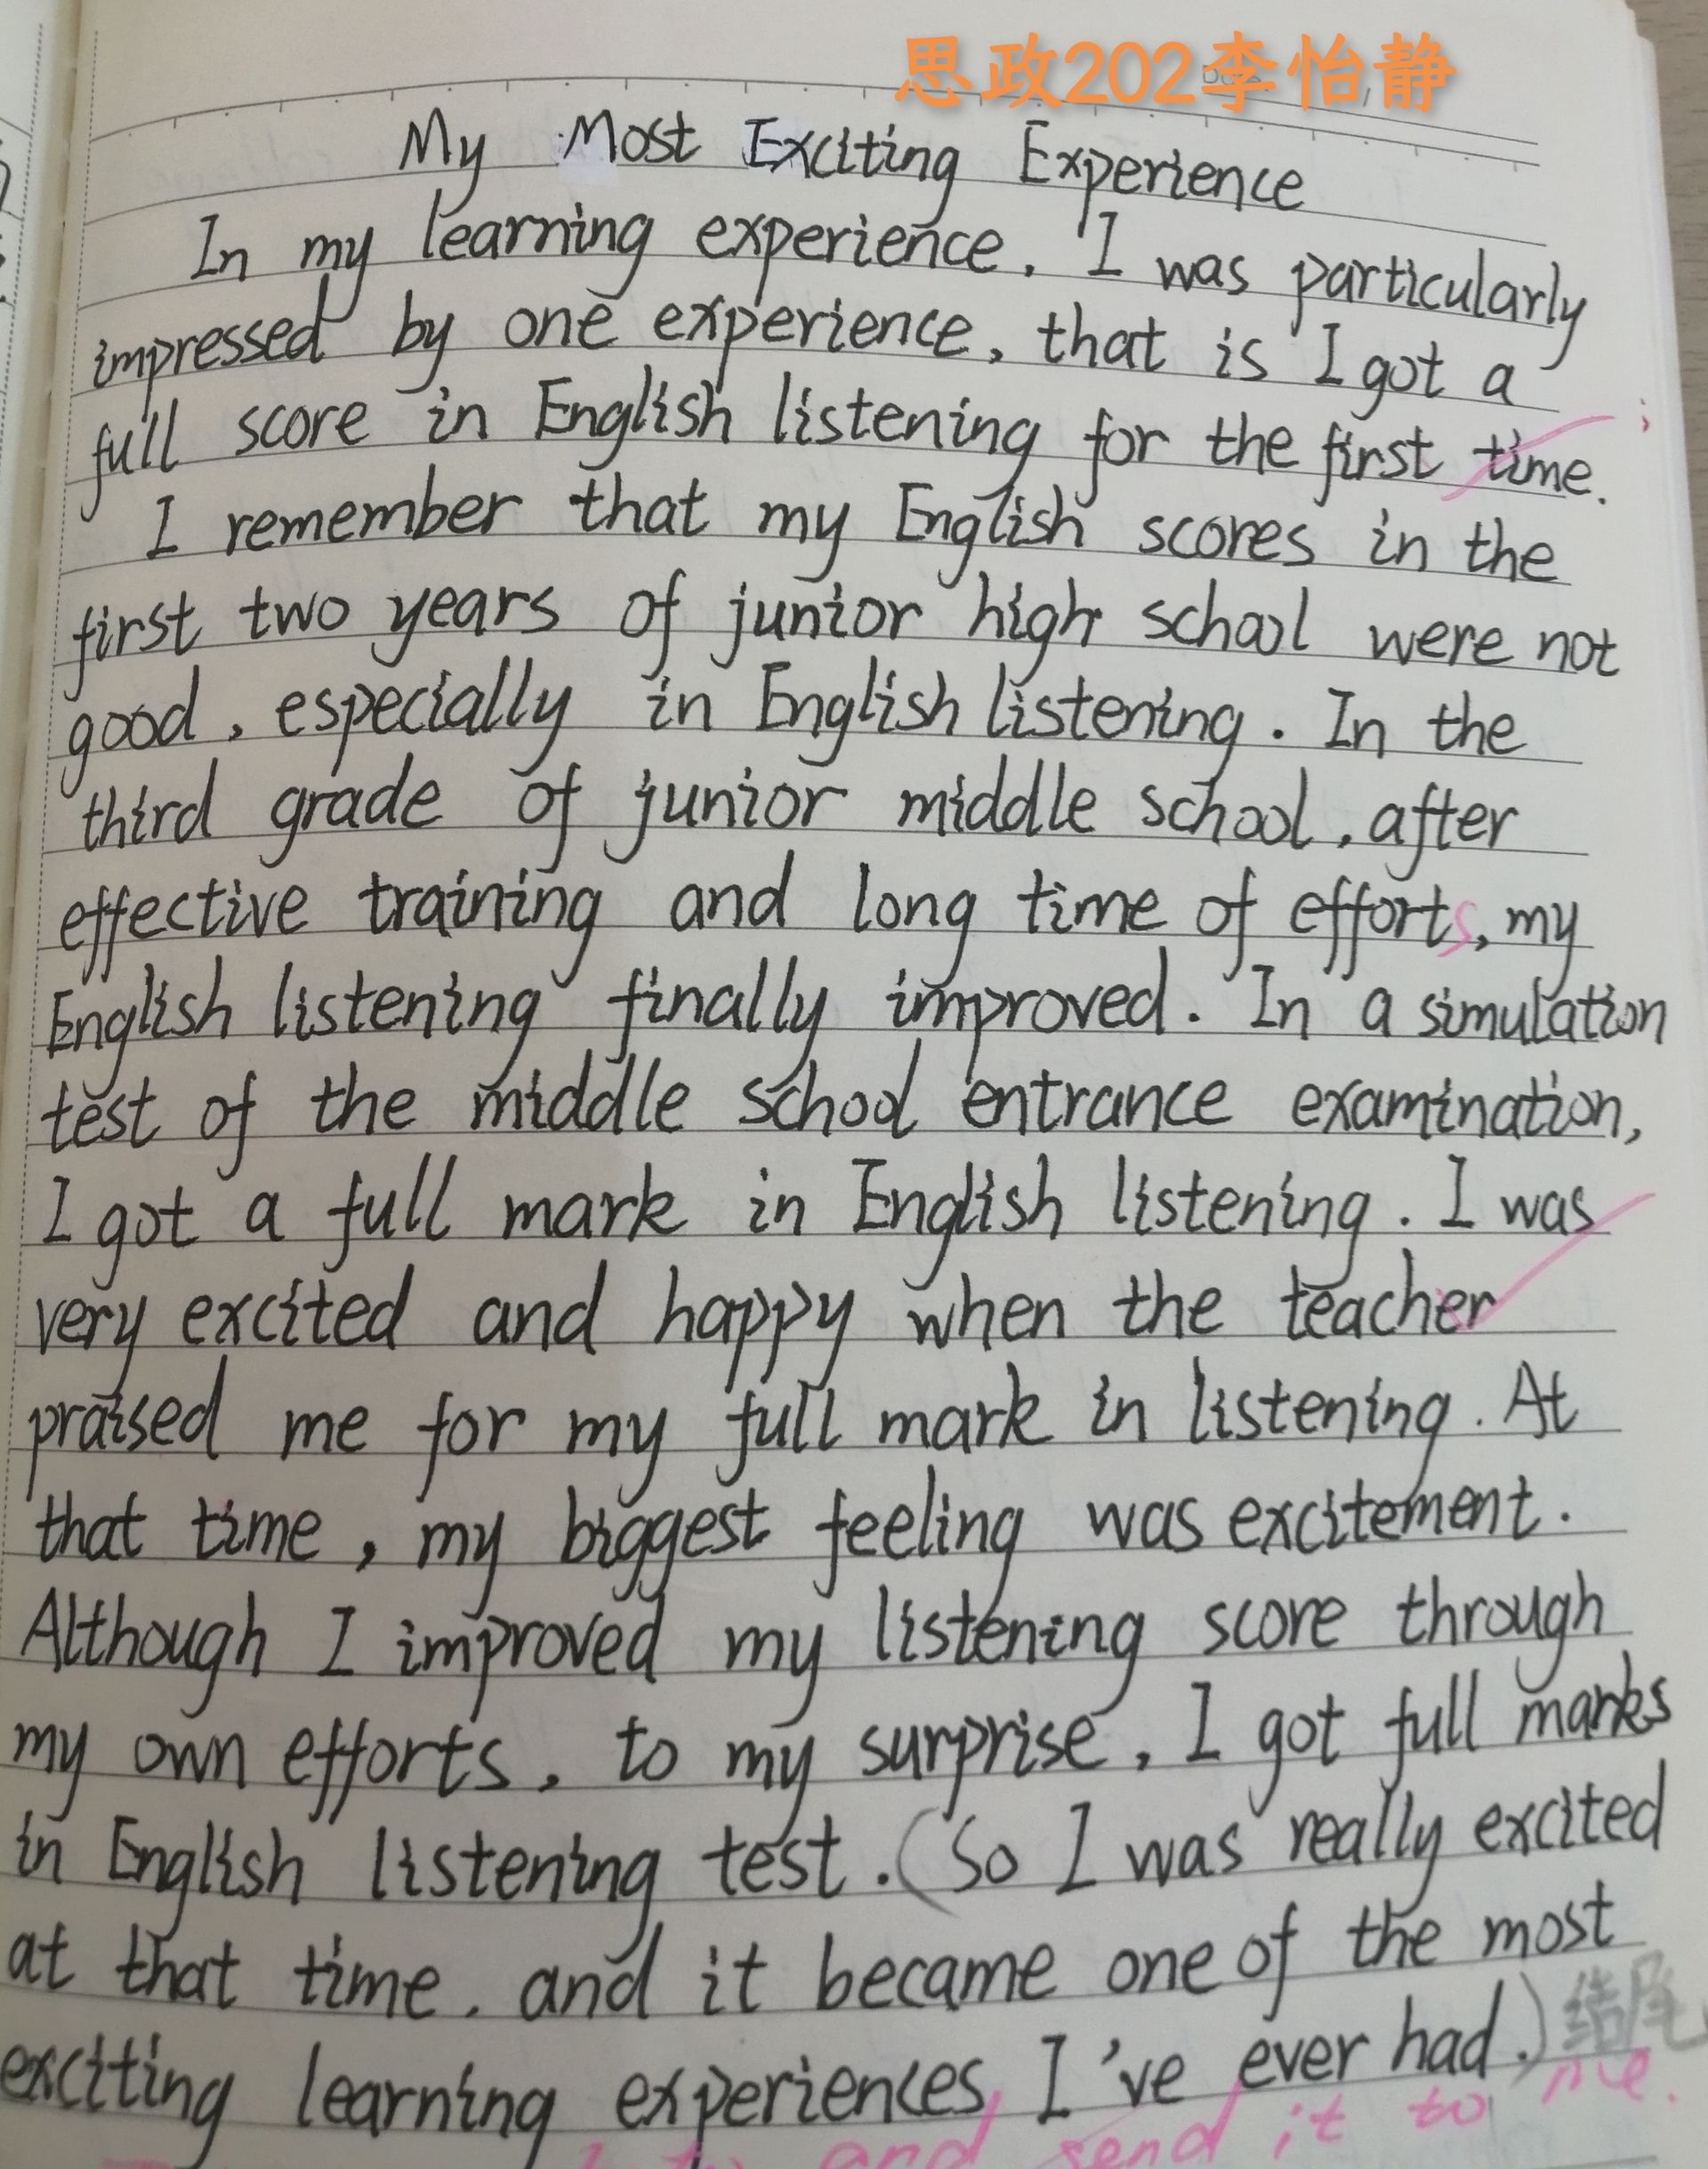 思政202李怡静
My Most Exciting Experience
In my learning experience, I was particularly
impressed by one experience, that is I got a
full score in English listening for the first time.
I remember that my English scores in the
first two years of junior high school were not
good, especially in English listening. In the
third grade of junior middle school, after
effective training and long time of efforts, my
English listening finally improved. In a simulation
test of the middle school entrance examination,
I got a full mark in English listening. I was
very excited and happy when the teacher
praised me for my full mark in listening. At
that time, my biggest feeling was excitement.
Although I improved my listening score through
my own efforts, to my surprise, I got full marks
in English listening test. (So I was really excited
at that time, and it became one of the most
exciting learning experiences I've ever had.) 结尾
and send it to me.